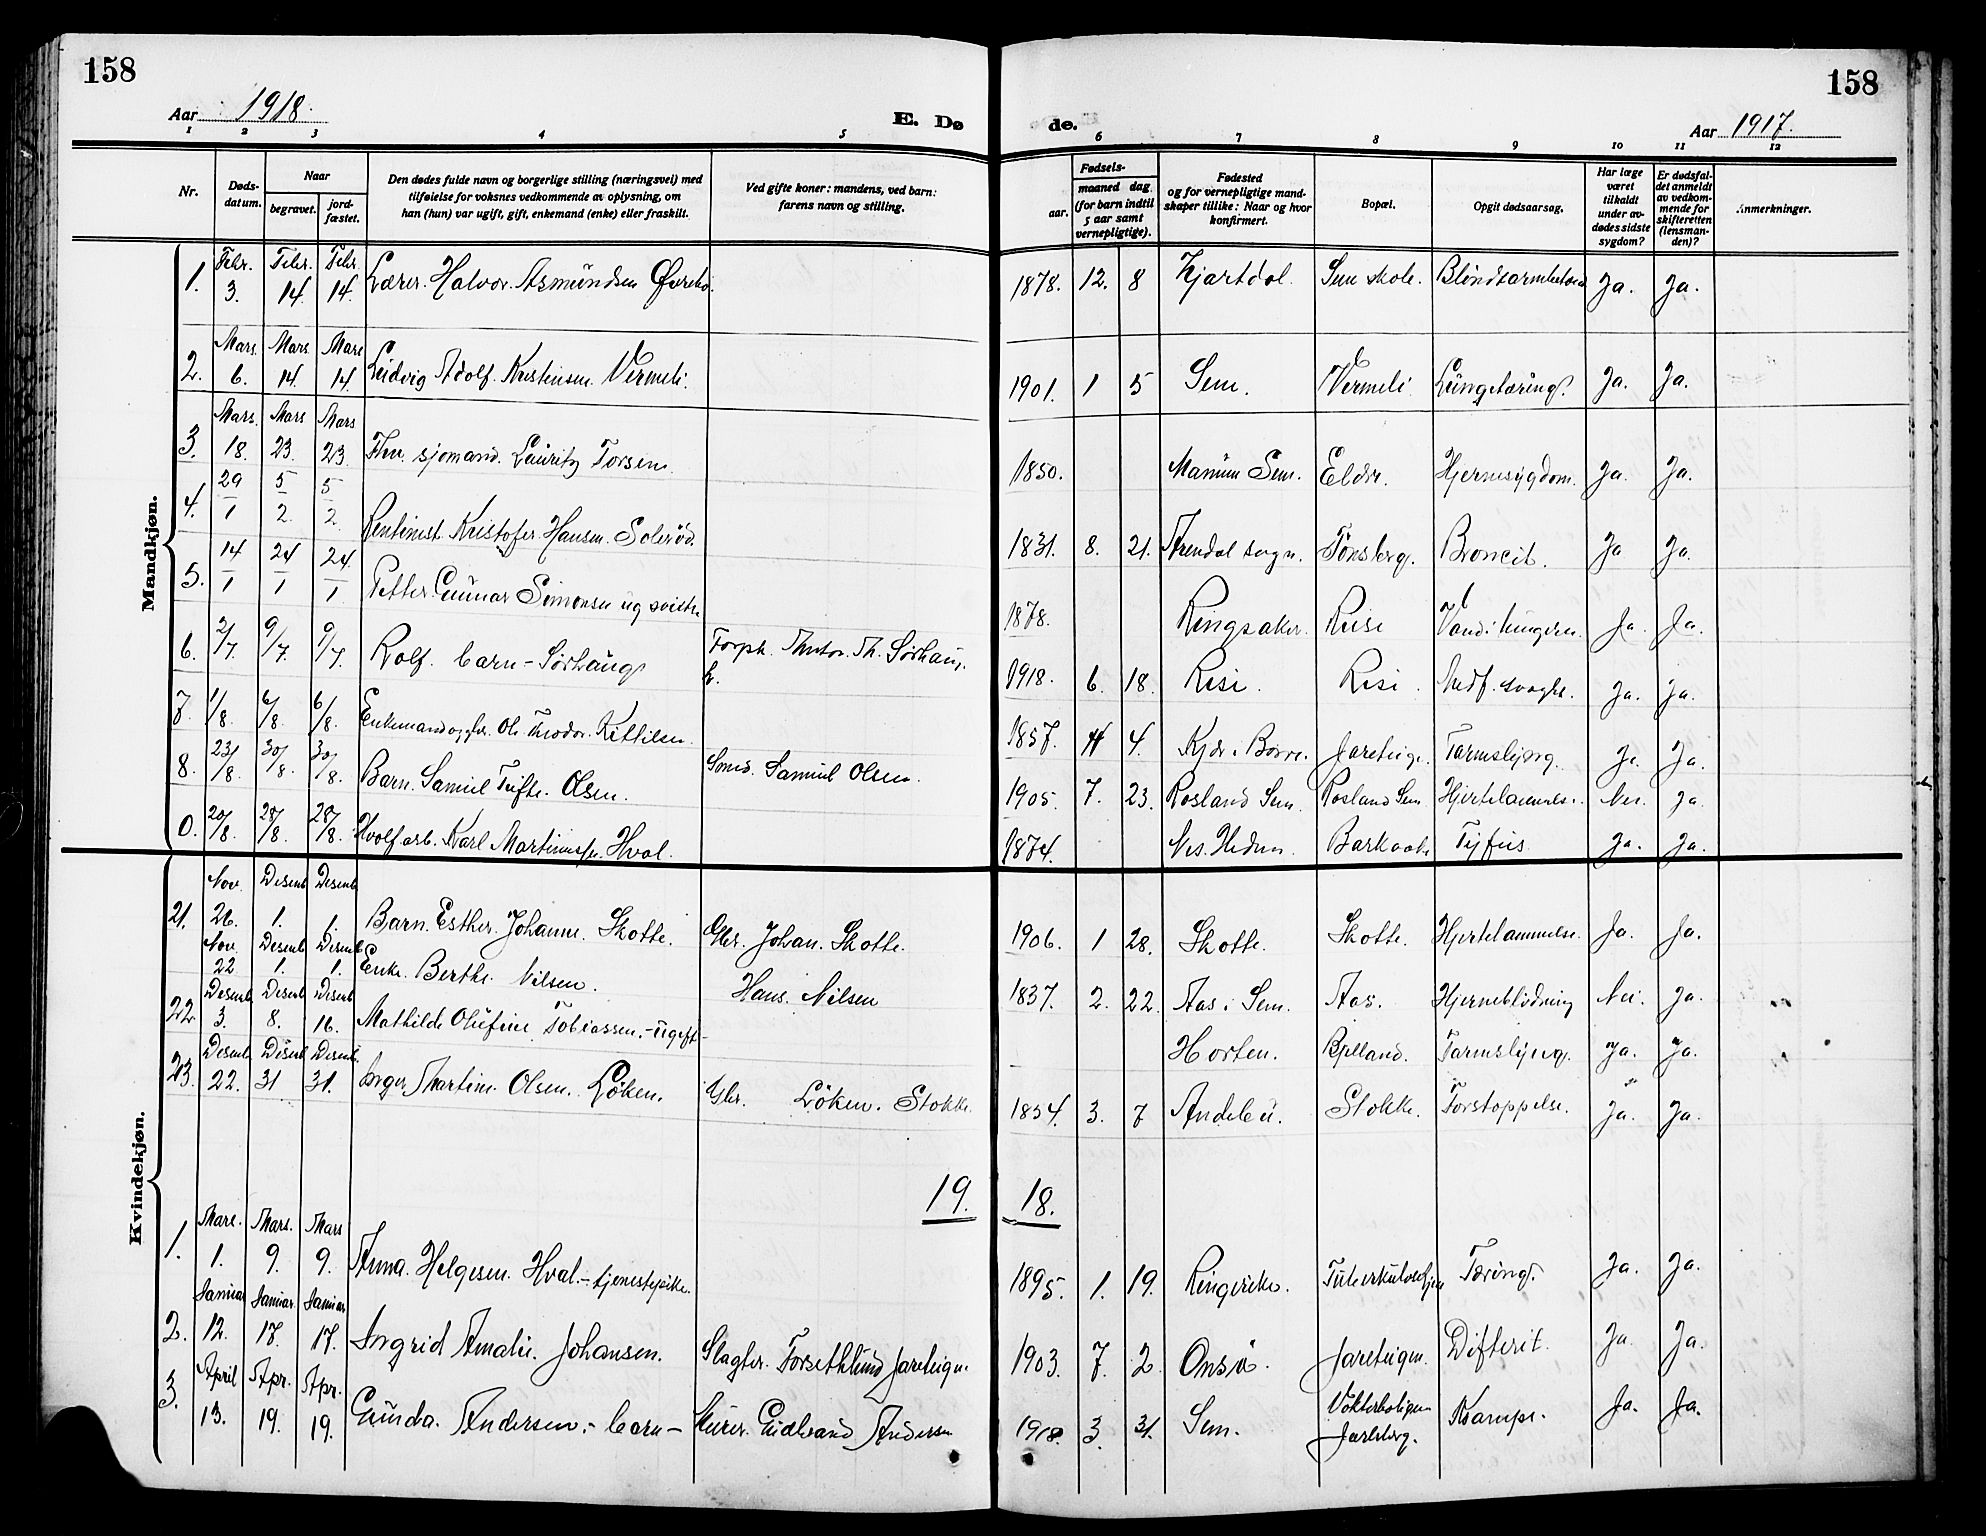 158
158
Aar 1918.
E. Dø
de.
Aar 1917.
1 2 3 4 5 6 7 8 9 10 11 12
Nr.
Døds-
datum.
Naar
begravet.
jord-
fæstet.
Den dødes fulde navn og borgerlige stilling (næringsvei) med
tilføielse for voksnes vedkommende av oplysning, om
han (hun) var ugift, gift, enkemand (enke) eller fraskilt.
Ved gifte koner: mandens, ved barn:
farens navn og stilling.
Fødsels-
aar.
maaned dag.
(for barn indtil
5 aar samt
vernepligtige).
Fødested
og for vernepligtige mand-
skaper tillike: Naar og hvor
konfirmert.
Bopæl.
Opgit dødsaarsag.
Har læge
været
tilkaldt
under av-
dødes sidste
sygdom?
Er dødsfal-
det anmeldt
av vedkom-
mende for
skifteretten
(lensman-
den)?
Anmerkninger.
Mandkjøn.
1. Febr. 3. Febr. 14. Febr. 14. Lærer. Halvor. Asmundsen 1878. 12. 8 Sem skole. Ja. Ja.
2. Mars. 6. Mars. 14. Mars 14. Ludvig Adolf. Kristensen. Vermeli. 1901. 1 5 Sem. Vermeli Lungetæring. Ja. Ja.
3. Mars. 18. Mars 23. Mars 23. sjømand. Lauritz Torsen. 1850. Sem. Hjernesygdom. Ja. Ja.
4. 29/1 5/2 5/2 Kristofer Hansen. Solerød. 1831. 8. 21. Arendal Tønsberg. Ja Ja.
5. 14/1 24/1 24/1 Petter. Gunnar Simonsen ug 1878. Ringsaker. Ja. Ja.
6. 2/7. 9/7. 9/7. Rolf. barn - Sørhaug 1918. 6. 18. Resi. Resi. Medf. Ja. Ja.
7. 1/8. 6/8. 6/8. Enkemand Ole Theodor. Kittilsen. 1857. 4. i Borre. Ja. Ja.
8. 23/8. 30/8. 30/8. Barn. Samuel Tufte. Olsen. Samuel Olsen. 1905. 7. 23. Rosland Sem. Rosland Sem. Nei. Ja.
20/8. 28/8. 28/8. Karl Hval. 1874. Tyfus Ja. Ja.
Kvindekjøn.
21. Nov. 26. Desemb 1. Desemb 1. Barn. Esther. Johanne. Skotte. Gbr. Johan. Skotte. 1906. 1 28. Skotte. Skotte. Hjertelammelse. Ja. Ja.
Nov. 22 Desemb 1. Desemb 1. Enke. Berthe Nilsen. Hans. Nilsen 1837. 2. 22. Aas i Sem. Aas. Hjerneblødning Nei. Ja.
22. Desemb 3. Desemb 8. Desemb 16. Mathilde Olufine Tobiassen. - ugift - Horten. Ja. Ja.
23. Desemb 22. Desemb 31 Desemb. 31. Inger Martine Olsen. Løken. Gbr. Løken. Stokke. 1854. 3. 7 Andebu. Stokke. Forstoppelse. Ja. Ja.
19. 18.
1. Mars. 1. Mars. 9. Mars 9. Anna. Helgesen. Hval. - tjenestepike. 1895. 1. 19. Ringerike. Tæring. Ja. Ja.
2. Januar 12. Januar. 17. Januar 17. Ingrid Amalie. Johansen. Slagter. Jareteigen 1903. 7. 2. Onsø. Jareteigen. Difterit. Ja. Ja.
3. April 13. Apr. 19. Apr. 19. Gunda. Andersen. - barn - Gudbrand Andersen 1918. 3. 31. Sem. Vokterboligen Jarlsberg. Krampe. Ja. Ja.